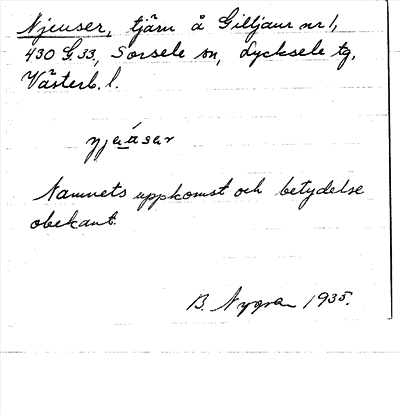 Njeuser, tjärn å Gilljaur nr 1,
430 G. 33, Sorsele sn, Lycksele tg,
Västerb. l.
Namnets uppkomst och betydelse
obekant.
B. Nygren 1935.